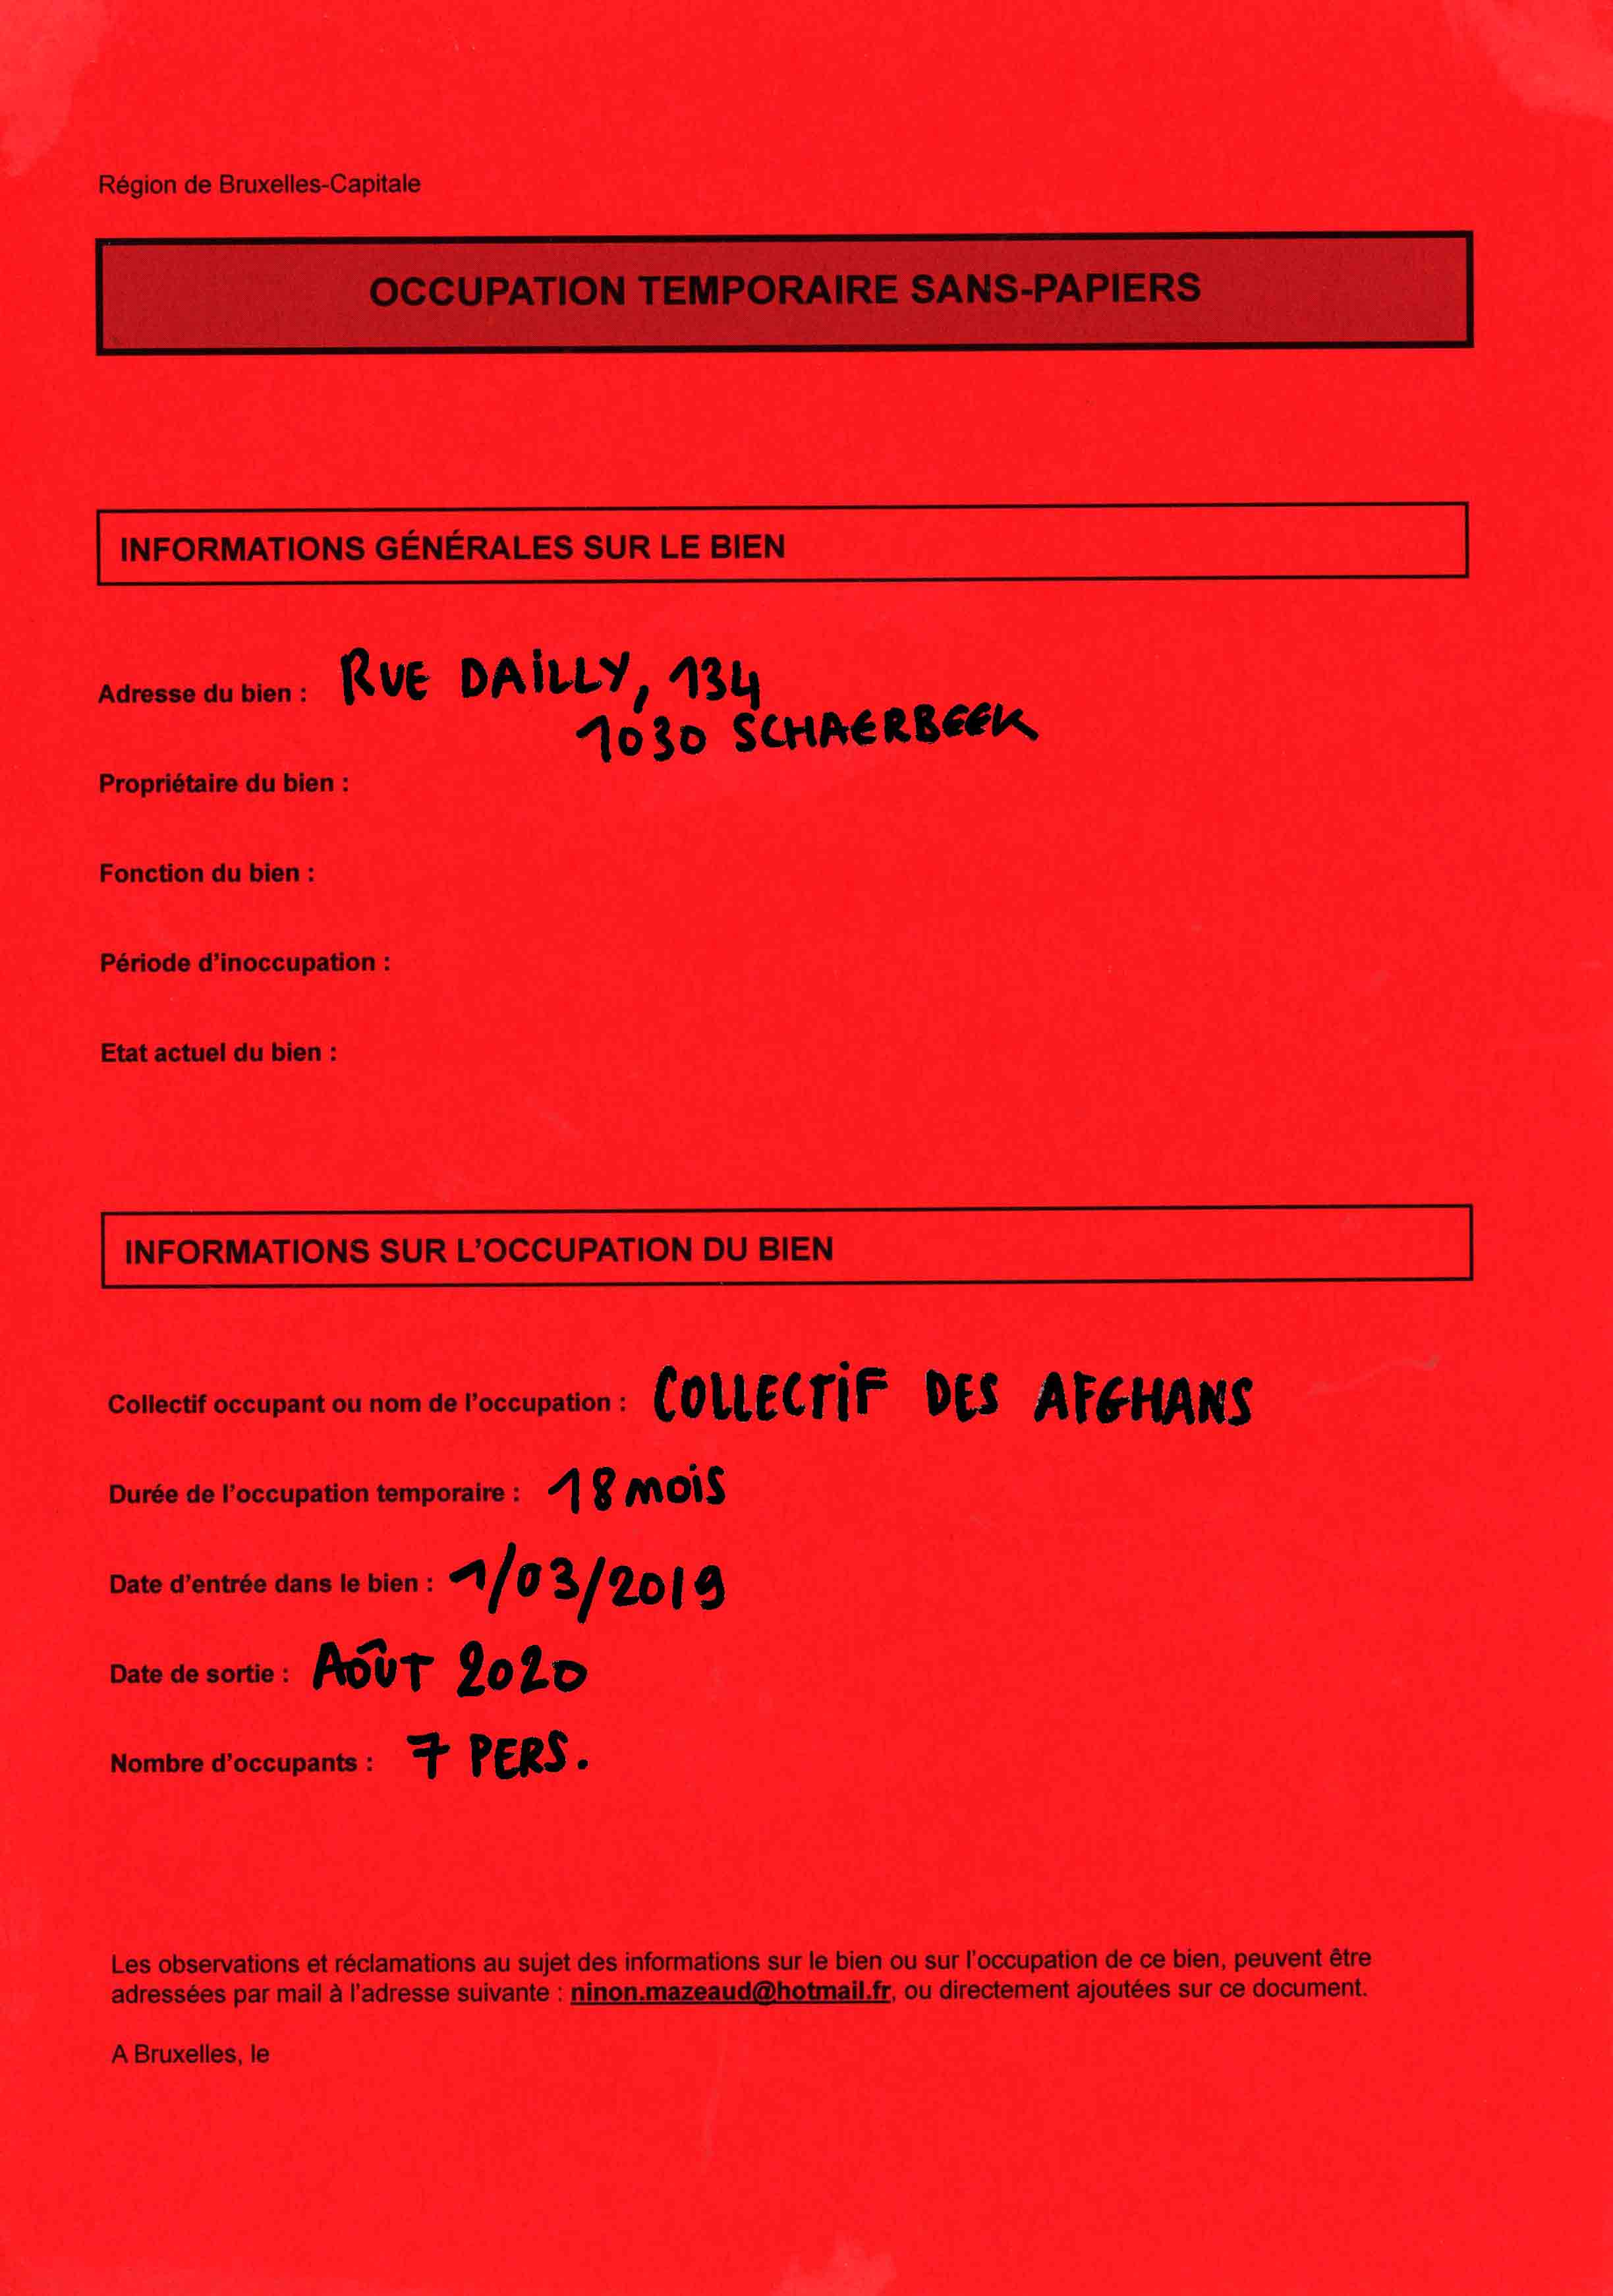 Région de Bruxelles-Capitale
OCCUPATION TEMPORAIRE SANS-PAPIERS
INFORMATIONS GÉNÉRALES SUR LE BIEN
Adresse du bien : RUE DAILLY, 134
1030 SCHAERBEEK
Propriétaire du bien :
Fonction du bien :
Période d'inoccupation :
Etat actuel du bien :
INFORMATIONS SUR L'OCCUPATION DU BIEN
Collectif occupant ou nom de l'occupation : COLLECTIF DES AFGHANS
Durée de l'occupation temporaire : 18 MOIS
Date d'entrée dans le bien : 1/03/2019
Date de sortie : AOÛT 2020
Nombre d'occupants : 7 PERS.
Les observations et réclamations au sujet des informations sur le bien ou sur l'occupation de ce bien, peuvent être
adressées par mail à l'adresse suivante : ninon.mazeaud@hotmail.fr, ou directement ajoutées sur ce document.
A Bruxelles, le